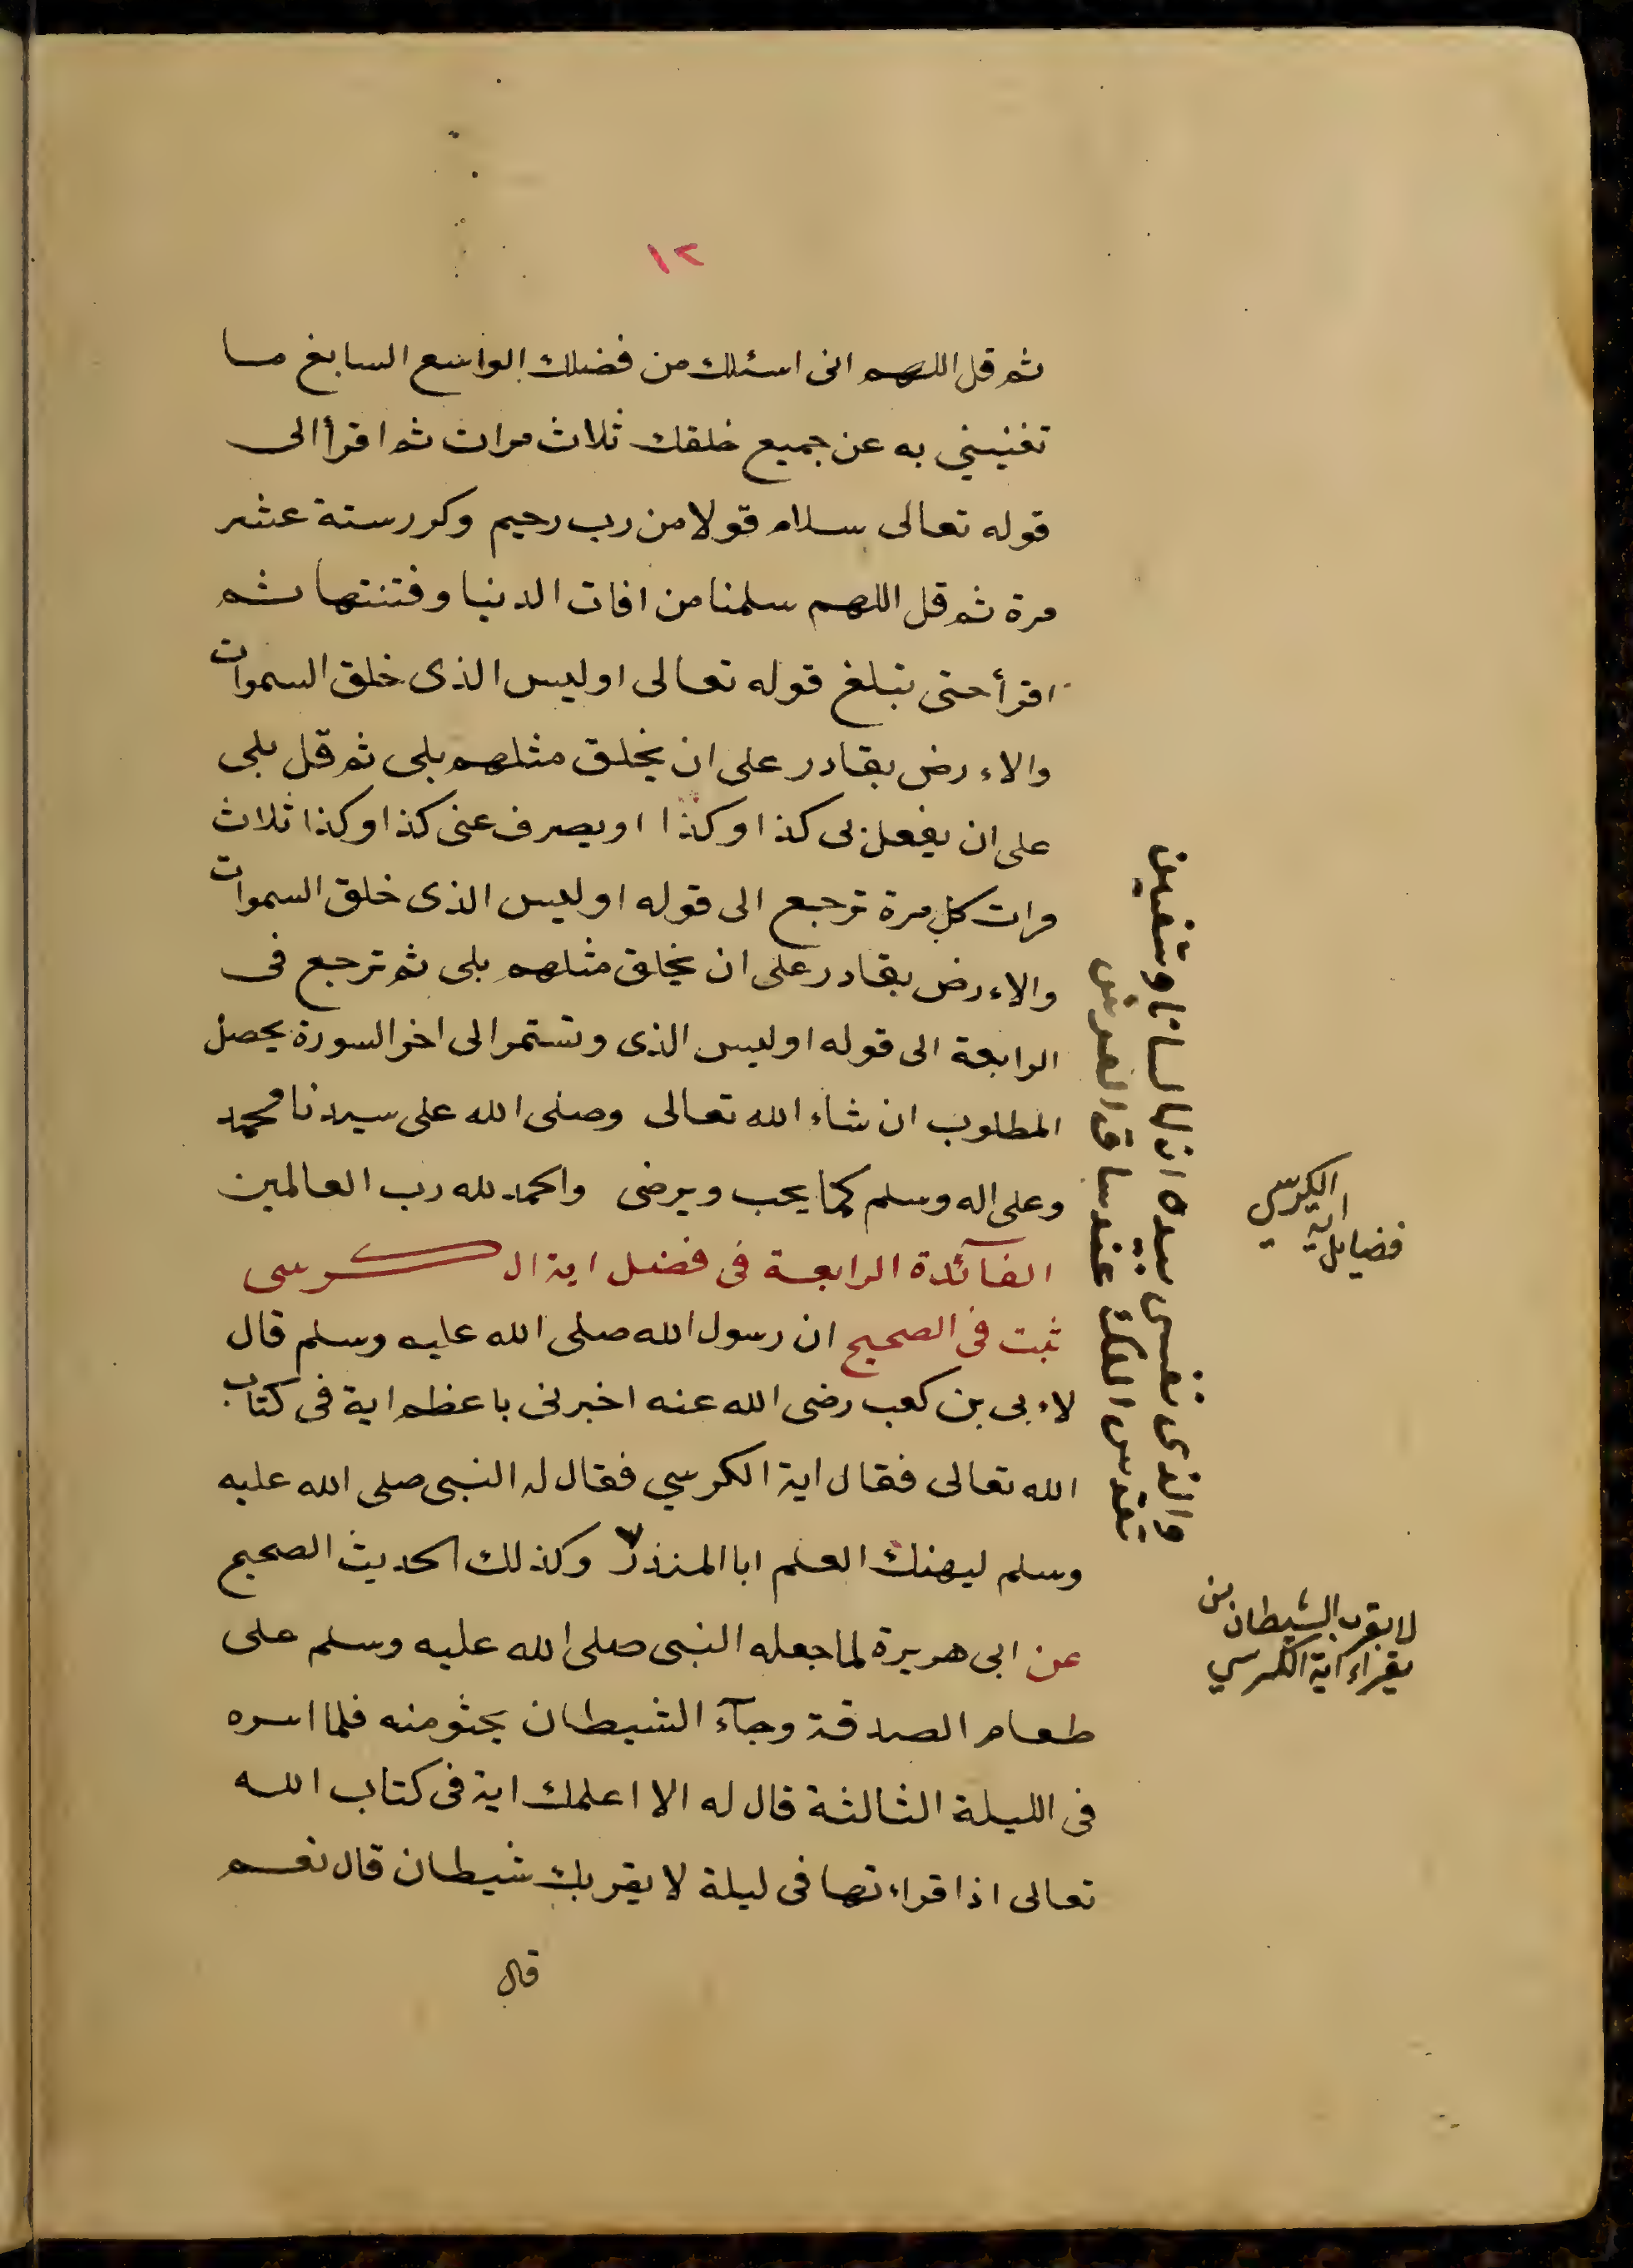 ١٢
ثم قل اللهم انى اسئلك من فضلك الواسع السابغ ما
تغنيني به عن جميع خلقك ثلاث مرات ثم اقرأ الى
قوله تعالى سلام قولا من رب رحيم وكرر ستة عشر
مرة ثم قل اللهم سلمنا من افات الدنيا وفتنتها ثم
اقرأ حتى تبلغ قوله تعالى اوليس الذى خلق السموات
والاءرض بقادر على ان يخلق مثلهم بلى ثم قل بلى
على ان يفعل لى كذا وكذا او يصرف عنى كذا وكذا ثلاث
مرات كل مرة ترجع الى قوله اوليس الذى خلق السموات
والاءرض بقادر على ان يخلق مثلهم بلى ثم ترجع فى
الرابعة الى قوله اوليس الذى وتستمر الى اخر السورة يحصل
المطلوب ان شاء الله تعالى وصلى الله على سيدنا محمد
وعلى اله وسلم كما يحب ويرضى والحمد لله رب العالمين
الفآئدة الرابعة فى فضل اية الكرسى
ثبت فى الصحيح ان رسول الله صلى الله عليه وسلم قال
لاءبى بن كعب رضى الله عنه اخبرنى باعظم اية فى كتاب
الله تعالى فقال اية الكرسي فقال له النبى صلى الله عليه
وسلم ليهنك العلم ابا المنذر وكذلك الحديث الصحيح
عن ابى هريرة لما جعله النبى صلى الله عليه وسلم على
طعام الصدقة وجآء الشيطان يحثو منه فلما اسره
فى الليلة الثالثة قال له الا اعلمك اية فى كتاب الله
تعالى اذا قراءتها فى ليلة لا يقربك شيطان قال نعم
قال
والذى نفسى بيده ان لها لسانا وشفتين
تقدس الملك عند ساق العرش
فضايل اية الكرسي
لا يقرب الشيطان من
يقراء آية الكرسي